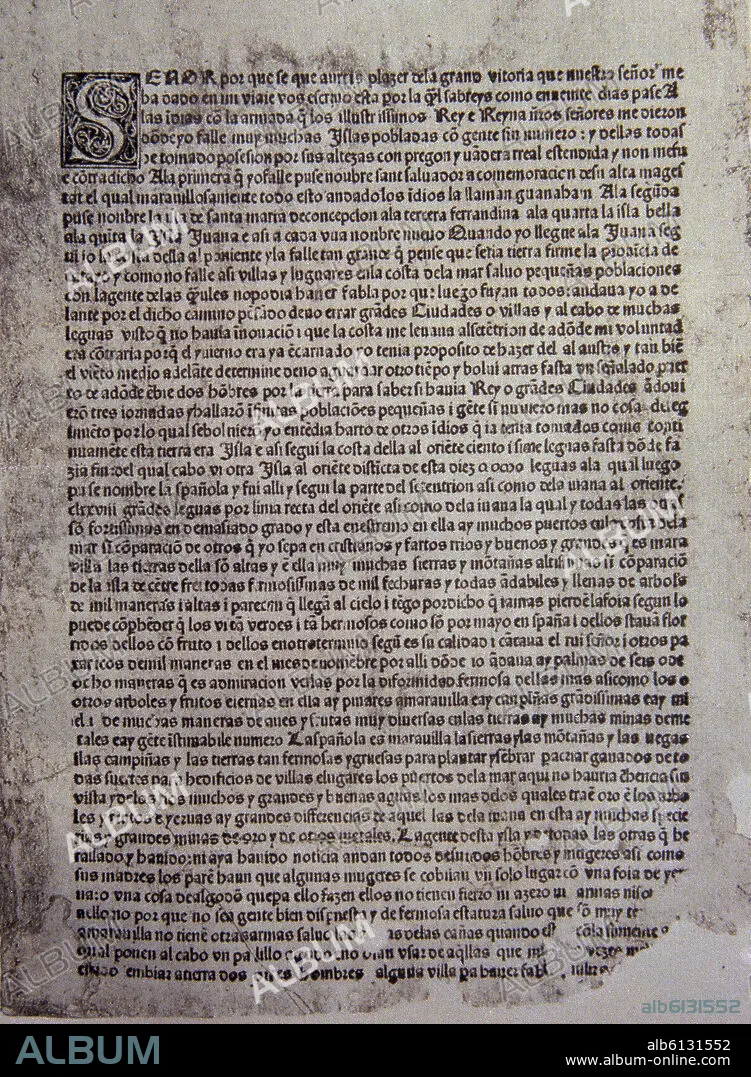 SEÑOR por que se que aureis plazer dela grand vitoria que nuestro señor me
ha dado en mi viaie vos escriuo esta por la q̃l sabreys como en ueinte dias pase A
las idias cõ la armada q̃ los illustrissimos Rey e Reyna ñros señores me dieron
dõde yo falle muy muchas Islas pobladas cõ gente sin numero: y dellas todas
he tomado posesion por sus altezas con pregon y uãdera rreal estendida y non mefu
e cõtradicho Ala primera q̃ yofalle puse noubre sant saluador a comemoracion desu alta mages
tat el qual marauillosamente todo esto andadolos ĩdios la llaman guanaham Ala segũda
puse nonbre la isla de santa maria deconcepcion ala tercera ferrandina ala quarta la isla bella
ala quita la Isla Juana e asi a cada vna nonbre nueuo Quando yo llegue ala Juana seg
ui io la costa della al poniente yla falle tan grande q̃ pense que seria tierra firme la prouicia de
catayo y como no falle asi villas y luguares enla costa dela mar saluo pequeñas poblaciones
con lagente delas q̃ules nopodia hauer fabla por que luego fuyan todos: andaua yo a de
lante por el dicho camino pẽsado deuo errar grãdes Ciudades o villas y al cabo de muchas
leguas visto q̃ no hauia ĩnouaciõ i que la costa me leuaua alsetẽtrion de adõde mi voluntad
era cõtraria porq̃ el yuierno era ya ẽcarnado yo tenia proposito de hazer del al austro y tan biẽ
el viẽto medio adelãte determine deno aguardar otro tiẽpo y bolui atras fasta un señalado puer
to de adõde ẽbie dos hõbres por la tierra para saber si hauia Rey o grãdes Ciudades ãdoui
erõ tres iornadas yhallarõ ĩfinitas poblaciões pequeñas i gẽte si numero mas no cosa deleg
imiẽto por lo qual sebol uierõ yo entẽdia harto de otros ĩdios q̃ ia tenia tomados como conti
nuamẽte esta tierra era Isla e asi segui la costa della al oriẽte ciento i siete leguas fasta dõde fa
zia fin: del qual cabo vi otra Isla al oriẽte disticta de esta diez o ocho leguas ala qual luego
puse nombre la spañola y fui alli y segui la parte del setentrion asi como dela iuana al oriente.
clxxviii grãdes leguas por linia recta del oriẽte asi como dela iuana la qual y todas las otras
sõ fortissimas en demasiado grado y esta enestremo en ella ay muchos puertos enla costa dela
mar si cõparaciõ de otros q̃ yo sepa en cristianos y fartos rrios y buenos y grandes q̃ es mara
villa las tierras della sõ altas y ẽ ella muy muchas sierras y mõtañas altissimas si cõparaciõ
de la isla de cẽtre frei todas fermosissimas de mil fechuras y todas ãdabiles y llenas de arbols
de mil maneras i altas i parecen q̃ llegã al cielo i tẽgo pordicho q̃ iamas pierdẽ lafoia segun lo
puede cõphẽder q̃ los vi tã verdes i tã hermosos como sõ por mayo en spaña i dellos stauã flor
ridos dellos cõ fruto i dellos enotrotermino segũ es su calidad i cãtaua el rui señor i otros pa
xaricos demil maneras en el mes de nouiẽbre por alli dõde io ãdaua ay palmas de seis ode
ocho maneras q̃ es admiracion verlas por la diformidad fermosa dellas mas asicomo los o
otros arboles y frutos eieruas en ella ay pinares amarauilla eay canpiñas grãdissimas eay mi
el i de muchas maneras de aues y frutas muy diuersas enlas tierras ay muchas minas deme
tales eay gẽte ĩstimabile numero Laspañola es marauilla lasierras ylas mõtañas y las uegas
ilas campiñas y las tierras tan fermosas ygruesas para plantar ysẽbrar pacriar ganados deto
das suertes para hedificios de villas elugares los puertos dela mar aqui no hauria chẽencia sin
vista ydelos rios muchos y grandes y buenas aguas los mas delos quales traẽ oro ẽ los arbo
les y frutos e yeruas ay grandes differencias de aquel las dela iuana en esta ay muchas specie
rias y grandes minas de oro y de otros metales. Lagente desta ysla y de todas las otras q̃ he
fallado y hauido: ni aya hauido noticia andan todos desnudos hõbres y mugeres asi como
sus madres los parẽ haun que algunas mugeres se cobiian vn solo lugar cõ vna foia de yer
ua: o vna cosa dealgodõ quepa ello fazen ellos no tienen fierro ni azero ni armas niso
aello no por que no sea gente bien dispuesta y de fermosa estatura saluo que sõ muy te
amarauilla no tienẽ otras armas saluo las as delas cañas quando es cõla simiente
qual ponen al cabo vn pa lillo agudo no osan vsar de aq̃llas que mi vezes
ciudo embiar atierra dos o tres hombres alguna villa pa hauer fabl
ALBUM
alb6131552
ALBUM
alb6131552
www.album-online.com